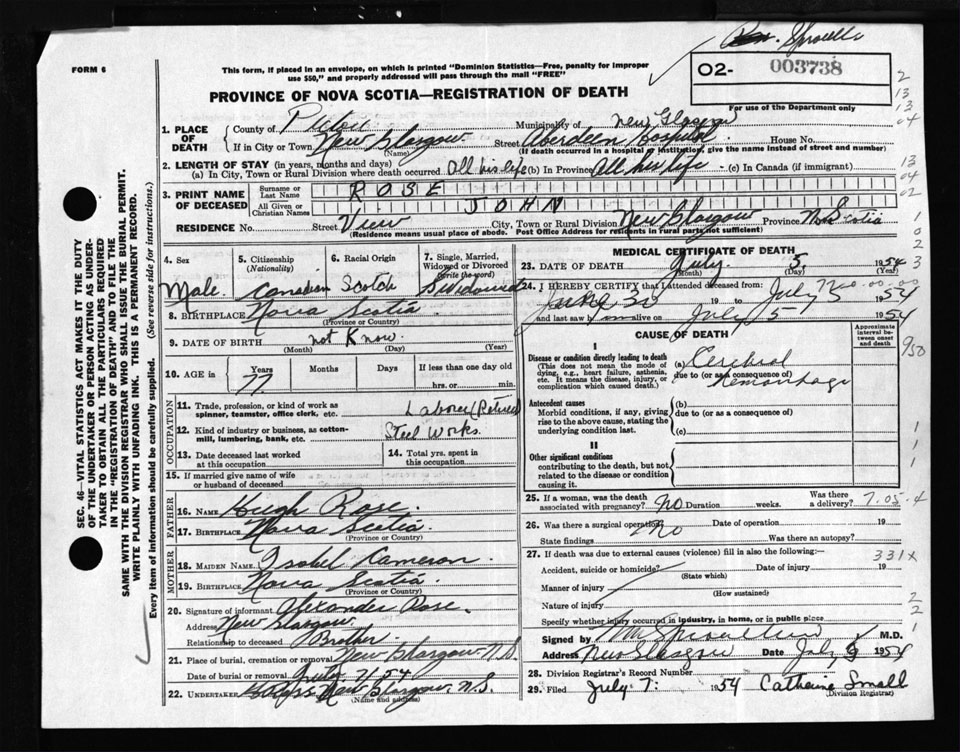 Sproull
FORM 6
This form, if placed in an envelope, on which is printed "Dominion Statistics—Free, penalty for improper
use $50," and properly addressed will pass through the mail "FREE"
O2- 003738
For use of the Department only
PROVINCE OF NOVA SCOTIA—REGISTRATION OF DEATH
1. PLACE OF DEATH
County of Pictou Municipality of New Glasgow
If in City or Town New Glasgow (Name) Street Aberdeen Hospital House No.
(If death occurred in a hospital or institution, give the name instead of street and number)
2. LENGTH OF STAY (in years, months and days)
(a) In City, Town or Rural Division where death occurred All his life (b) In Province All his life (c) In Canada (if immigrant)
3. PRINT NAME OF DECEASED
Surname or Last Name ROSE
All Given or Christian Names JOHN
RESIDENCE No. Street View City, Town or Rural Division New Glasgow Province N. Scotia
(Residence means usual place of abode. Post Office Address for residents in rural parts not sufficient)
4. Sex
Male
5. Citizenship (Nationality)
Canadian
6. Racial Origin
Scotch
7. Single, Married, Widowed or Divorced (write the word)
Widowed
8. BIRTHPLACE Nova Scotia
(Province or Country)
9. DATE OF BIRTH not Know
(Month) (Day) (Year)
10. AGE in
Years Months Days If less than one day old
77 hrs. or min.
OCCUPATION
11. Trade, profession, or kind of work as spinner, teamster, office clerk, etc. Laborer (Retired)
12. Kind of industry or business, as cotton-mill, lumbering, bank, etc. Steel Works.
13. Date deceased last worked at this occupation
14. Total yrs. spent in this occupation
15. If married give name of wife or husband of deceased
FATHER
16. Name Hugh Rose
17. Birthplace Nova Scotia
(Province or Country)
MOTHER
18. Maiden Name Isobel Cameron
19. Birthplace Nova Scotia
(Province or Country)
20. Signature of informant Alexander Rose.
Address New Glasgow
Relationship to deceased Brother
21. Place of burial, cremation or removal New Glasgow N.S.
Date of burial or removal July 7/54
22. Undertaker New Glasgow N.S.
(Name and address)
MEDICAL CERTIFICATE OF DEATH
23. DATE OF DEATH July 5 1954
(Month) (Day) (Year)
24. I HEREBY CERTIFY that I attended deceased from:
June 30 19 to July 5 1954
and last saw him alive on July 5 1954
CAUSE OF DEATH
Approximate interval between onset and death
I
Disease or condition directly leading to death
(This does not mean the mode of dying, e.g., heart failure, asthenia, etc. It means the disease, injury, or complication which caused death.)
(a) Cerebral
due to (or as a consequence of)
Hemorrhage
Antecedent causes
Morbid conditions, if any, giving rise to the above cause, stating the underlying condition last.
(b)
due to (or as a consequence of)
(c)
II
Other significant conditions
contributing to the death, but not related to the disease or condition causing it.
25. If a woman, was the death associated with pregnancy? No Duration weeks. Was there a delivery?
7.05.4
26. Was there a surgical operation? No Date of operation 19
State findings Was there an autopsy?
27. If death was due to external causes (violence) fill in also the following:—
331x
Accident, suicide or homicide? Date of injury 19
(State which)
Manner of injury
(How sustained)
Nature of injury
Specify whether injury occurred in industry, in home, or in public place
Signed by M.D.
Address New Glasgow Date July 1954
28. Division Registrar's Record Number
29. Filed July 7: 1954 Catherine Small
(Division Registrar)
SEC. 46—VITAL STATISTICS ACT MAKES IT THE DUTY
OF THE UNDERTAKER OR PERSON ACTING AS UNDERTAKER
TO OBTAIN ALL THE PARTICULARS REQUIRED
IN THE "REGISTRATION OF DEATH" AND TO FILE THE
SAME WITH THE DIVISION REGISTRAR WHO SHALL ISSUE THE BURIAL PERMIT.
WRITE PLAINLY WITH UNFADING INK. THIS IS A PERMANENT RECORD.
Every item of information should be carefully supplied. (See reverse side for instructions.)